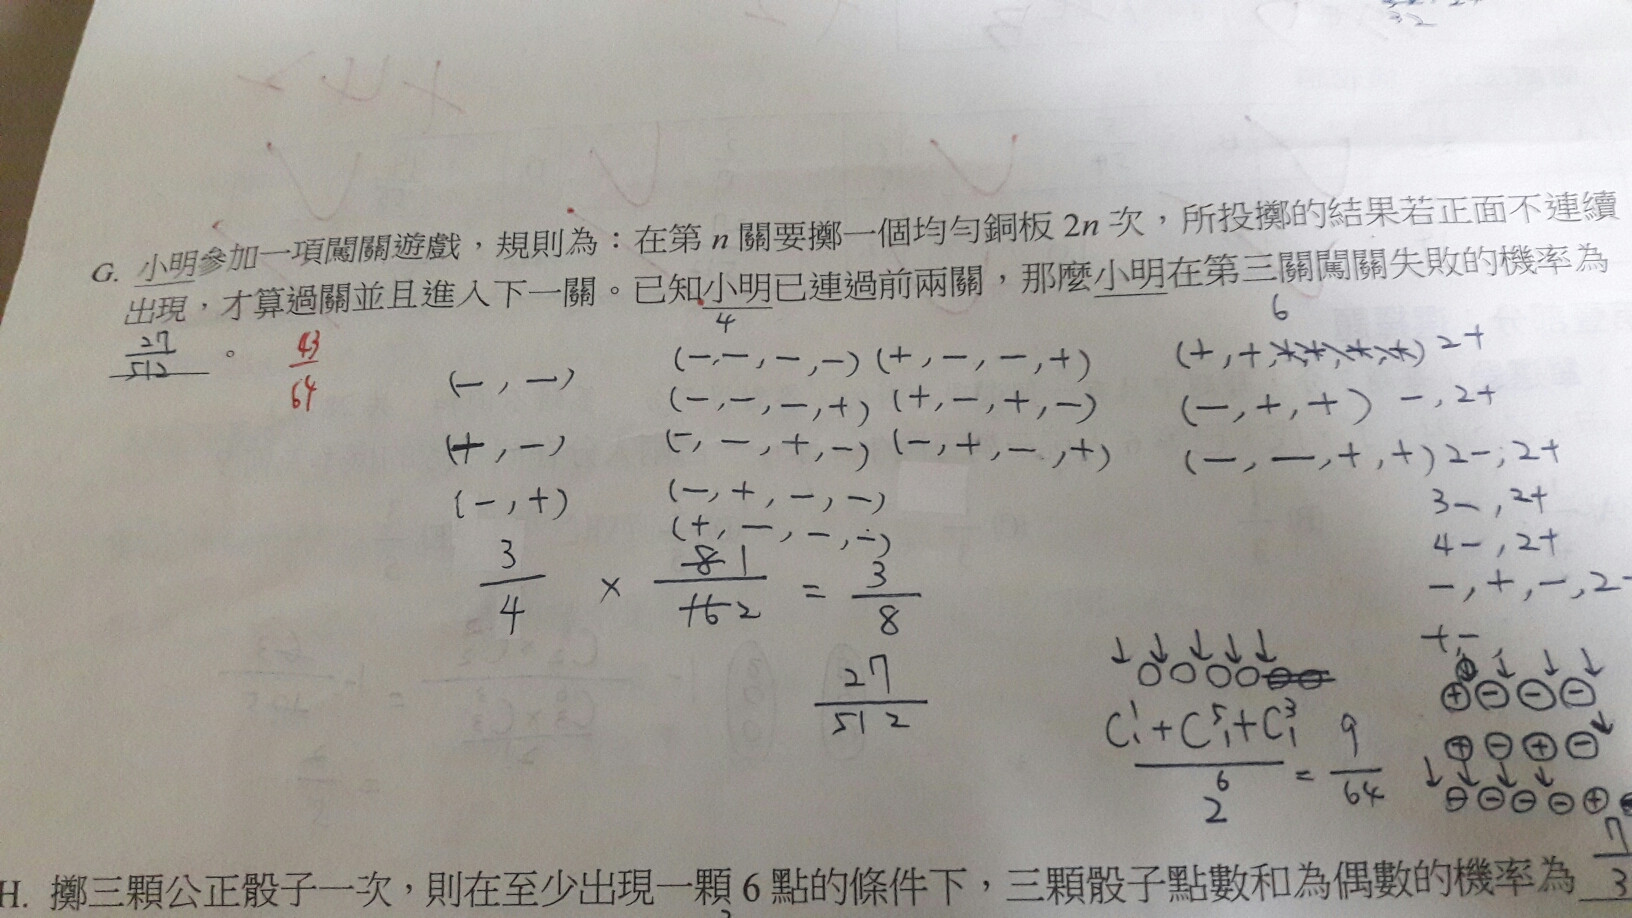 G. 小明參加一項闖關遊戲，規則為：在第 n 關要擲一個均勻銅板 2n 次，所投擲的結果若正面不連續
出現，才算過關並且進入下一關。已知小明已連過前兩關，那麼小明在第三關闖關失敗的機率為
27/512 。 43/64
4
6
(-,-) (-,-,-,-) (+,-,-,+) (+,+,*,*,*,*) 2+
(-,-,-,+) (+,-,+,-) (-,+,+) -,2+
(+,-) (-,-,+,-) (-,+,-,+) (-,-,+,+) 2-,2+
(-,+) (-,+,-,-) 3-,2+
(+,-,-,-) 4-,2+
3/4 × 81/162 = 3/8
-,+,-,2
+,-
27/512
C¹₁+C⁵₁+C³₁/2⁶ = 9/64
⊕⊖⊖⊖
⊕⊖⊕⊖
⊖⊖⊖⊖⊕
H. 擲三顆公正骰子一次，則在至少出現一顆 6 點的條件下，三顆骰子點數和為偶數的機率為